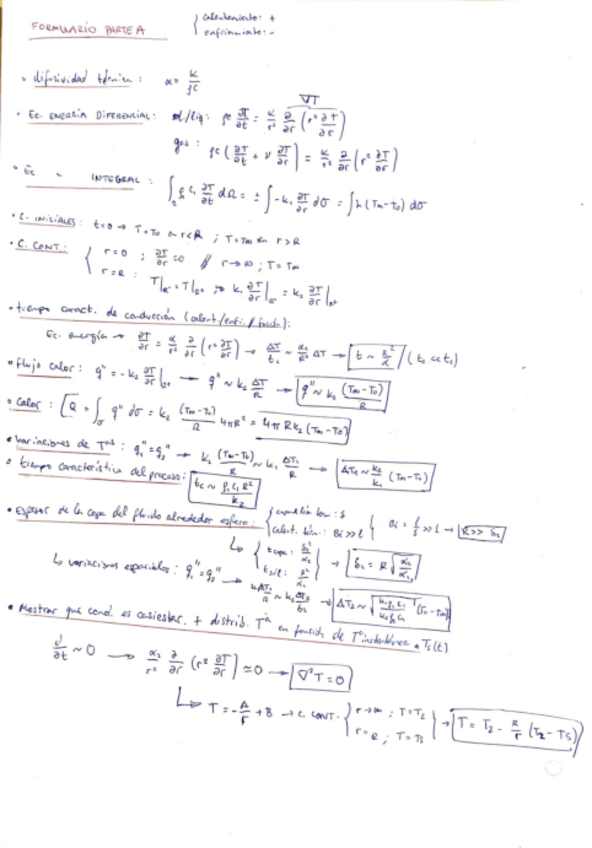 FORMULARIO PARTE A { calentamiento: +
enfriamiento: -
• difusividad térmica: α = k/ρc
• Ec. ENERGÍA DIFERENCIAL: sól/liq: ρc ∂T/∂t = k/r² ∂/∂r (r² ∂T/∂r) ∇T
gas: ρc (∂T/∂t + v ∂T/∂r) = k/r² ∂/∂r (r² ∂T/∂r)
• Ec " INTEGRAL: ∫ ρ₁ c₁ ∂T/∂t dΩ = ± ∫ -k₁ ∂T/∂r dσ = ∫ h (T∞-T₀) dσ
• C. INICIALES: t=0 → T=T₀ en r<R ; T=T∞ en r>R
• C. CONT.: { r=0 ; ∂T/∂r = 0 // r→∞ ; T=T∞
r=R : T|R⁻ = T|R⁺ ; → k₁ ∂T/∂r|R⁻ = k₂ ∂T/∂r|R⁺
• tiempo caract. de conducción (calent/enfr./):
Ec. energía → ∂T/∂t = α/r² ∂/∂r (r² ∂T/∂r) → ΔT/t₁ ~ α₁/R² ΔT → t ~ R²/α / (t₂ << t₁)
• flujo calor: q" = -k₂ ∂T/∂r|R⁺ → q" ~ k₂ ΔT/R → q" ~ k₂ (T∞-T₀)/R
• Calor: Q = ∫σ q" dσ = k₂ (T∞-T₀)/R 4πR² = 4πRk₂ (T∞-T₀)
• Variaciones de Tᵃˢ: q₁" = q₂" → k₂ (T∞-T₀)/R ~ k₁ ΔT₁/R → ΔT₁ ~ k₂/k₁ (T∞-T₀)
• tiempo característico del proceso: tc ~ ρ₁c₁R²/k₂
• Espesor de la capa del fluido alrededor esfera: { : δ
calent. tér.: Bi >> 1 } Bi = >> 1 → R >> δ₂
↳ { t capa: δ₂²/α₂
t sil: R²/α₁ } → δ₂ = R √(α₂/α₁)
↳ variaciones espaciales: q₁" = q₂" → k₁ΔT₁/R ~ k₂ ΔT₂/δ₂ → ΔT₂ ~ √(k₁ρ₁c₁/k₂ρ₂c₂) (T₀-T∞)
• Mostrar que cond. es casiestac. + distrib. Tᵃ en función de Tᵃ instantánea Ts(t)
∂/∂t ~ 0 → α₂/r² ∂/∂r (r² ∂T/∂r) ≈ 0 → ∇²T = 0
↳ T = -A/r + B → C. CONT. { r→∞ ; T=T₂
r=R ; T=Ts } → T = T₂ - R/r (T₂-Ts)